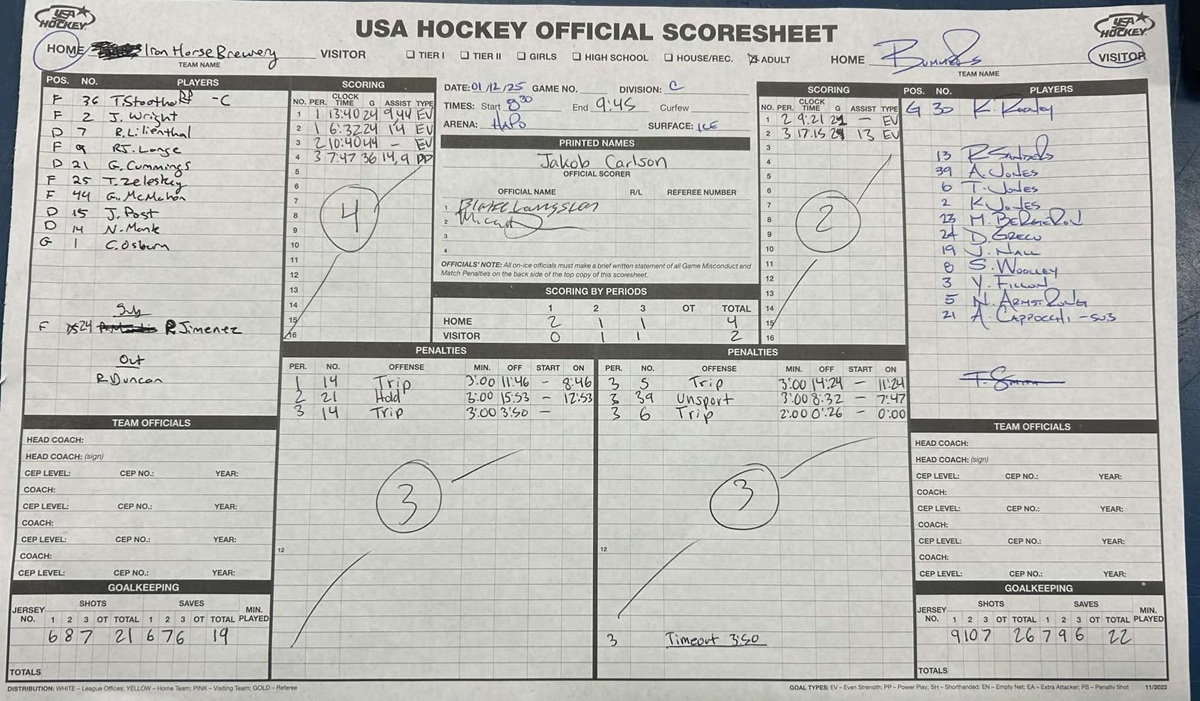 USA HOCKEY OFFICIAL SCORESHEET
USA HOCKEY
USA HOCKEY
HOME Iron Horse Brewery VISITOR
TEAM NAME
☐ TIER I ☐ TIER II ☐ GIRLS ☐ HIGH SCHOOL ☐ HOUSE/REC. ☒ ADULT
HOME Bummers VISITOR
TEAM NAME
POS. NO. PLAYERS
F 36 T. Stoothoff -C
F 2 J. Wright
D 7 R. Lilienthal
F 9 RJ. Lange
D 21 G. Cummings
F 25 T. Zeleskey
F 44 G. McMahon
D 15 J. Post
D 14 N. Monk
G 1 C. Osburn
Sub
F 24 R Jimenez
Out
R. Duncan
TEAM OFFICIALS
HEAD COACH:
HEAD COACH: (sign)
CEP LEVEL: CEP NO.: YEAR:
COACH:
CEP LEVEL: CEP NO.: YEAR:
COACH:
CEP LEVEL: CEP NO.: YEAR:
COACH:
CEP LEVEL: CEP NO.: YEAR:
GOALKEEPING
JERSEY NO. SHOTS SAVES MIN. PLAYED
1 2 3 OT TOTAL 1 2 3 OT TOTAL
6 8 7 21 6 7 6 19
TOTALS
SCORING
NO. PER. CLOCK TIME G ASSIST TYPE
1 1 13:40 24 9,44 EV
2 1 6:32 24 14 EV
3 2 10:40 44 - EV
4 3 7:47 36 14,9 PP
5
6
7
8
9
10
11
12
13
14
15
16
4
DATE: 01/12/25 GAME NO. DIVISION: C
TIMES: Start 8:30 End 9:45 Curfew
ARENA: HAPO SURFACE: ICE
PRINTED NAMES
Jakob Carlson
OFFICIAL SCORER
OFFICIAL NAME R/L REFEREE NUMBER
1
2
3
4
OFFICIALS' NOTE: All on-ice officials must make a brief written statement of all Game Misconduct and
Match Penalties on the back side of the top copy of this scoresheet.
SCORING BY PERIODS
1 2 3 OT TOTAL
HOME 2 1 1 4
VISITOR 0 1 1 2
SCORING
NO. PER. CLOCK TIME G ASSIST TYPE
1 2 9:21 21 - EV
2 3 17:15 24 13 EV
3
4
5
6
7
8
9
10
11
12
13
14
15
16
2
PENALTIES
PER. NO. OFFENSE MIN. OFF START ON
1 14 Trip 3:00 11:46 - 8:46
2 21 Hold 3:00 15:53 - 12:53
3 14 Trip 3:00 3:50 -
3
12
PENALTIES
PER. NO. OFFENSE MIN. OFF START ON
3 5 Trip 3:00 14:24 - 11:24
3 39 Unsport 3:00 8:32 - 7:47
3 6 Trip 2:00 0:26 - 0:00
3
12
3 Timeout 3:50
POS. NO. PLAYERS
G 30 K.
13 R
39 A. Jones
6 T. Jones
2 K. Jones
23 M. Bergeron
24 D. Greco
19 J. Nall
8 S. Woolley
3 Y. Fillon
5 N. Armstrong
21 A. Cappocchi - SUB
T. Smith
TEAM OFFICIALS
HEAD COACH:
HEAD COACH: (sign)
CEP LEVEL: CEP NO.: YEAR:
COACH:
CEP LEVEL: CEP NO.: YEAR:
COACH:
CEP LEVEL: CEP NO.: YEAR:
COACH:
CEP LEVEL: CEP NO.: YEAR:
GOALKEEPING
JERSEY NO. SHOTS SAVES MIN. PLAYED
1 2 3 OT TOTAL 1 2 3 OT TOTAL
9 10 7 26 7 9 6 22
TOTALS
DISTRIBUTION: WHITE – League Offices; YELLOW – Home Team; PINK – Visiting Team; GOLD – Referee
GOAL TYPES: EV – Even Strength; PP – Power Play; SH – Shorthanded; EN – Empty Net; EA – Extra Attacker; PS – Penalty Shot 11/2022